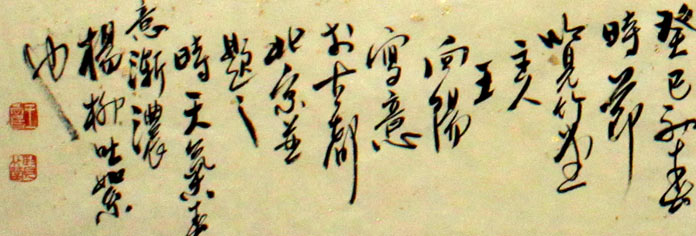 癸巳初春
時節
听見竹堂
主人
王
向陽
寫意
於古都
北京並
題之
時天氣春
意漸濃
楊柳吐絮
也